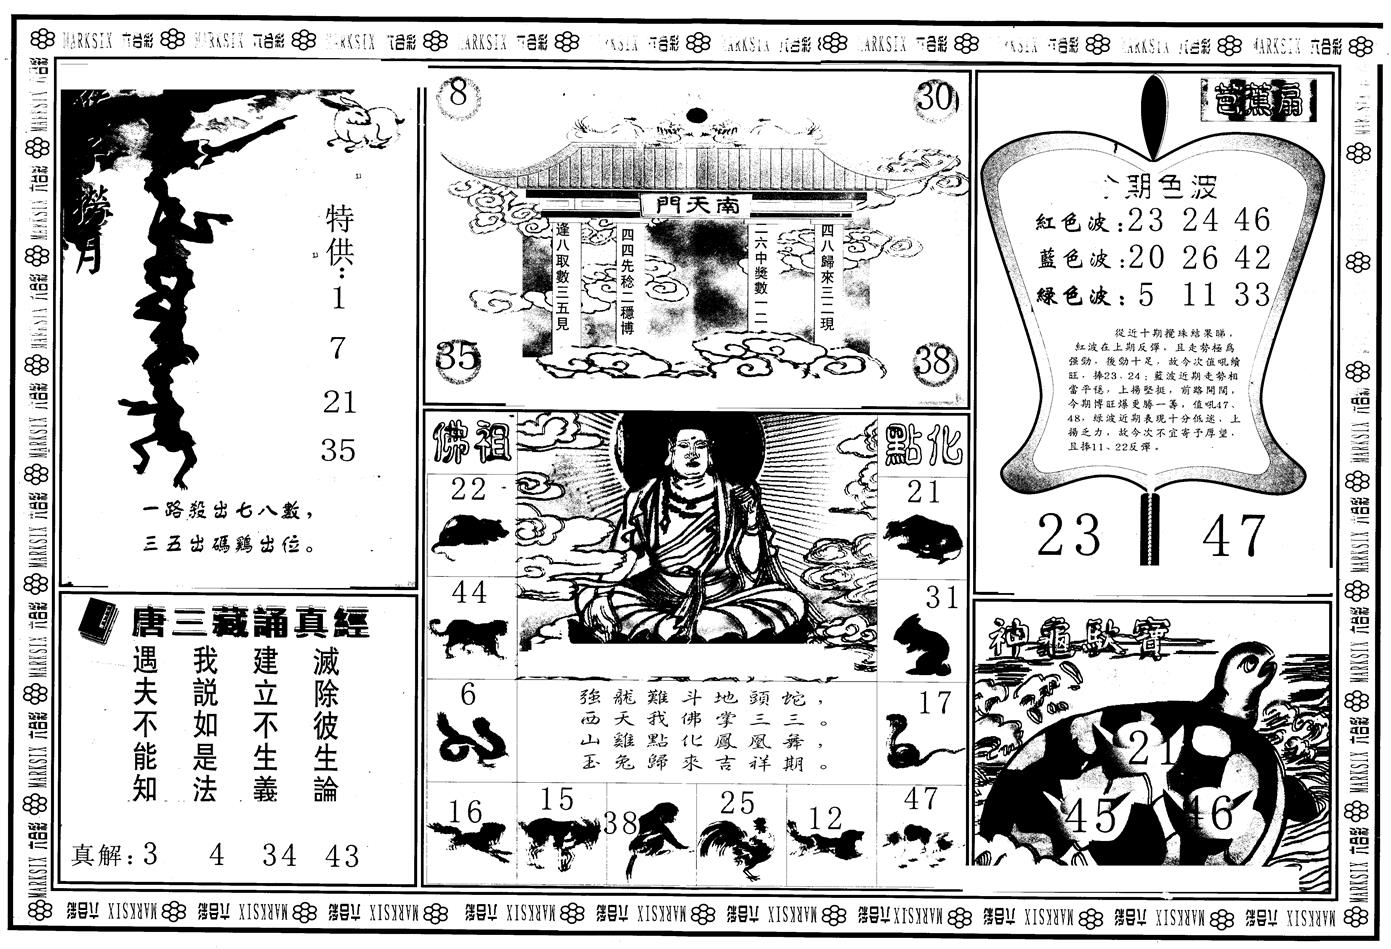 MARKSIX 六合彩 MARKSIX 六合彩 MARKSIX 六合彩 MARKSIX 六合彩 MARKSIX 六合彩 MARKSIX 六合彩 MARKSIX 六合彩 MARKSIX 六合彩 MARKSIX 六合彩 MARKSIX 六合彩
撈月
特供:
1
7
21
35
一路殺出七八數，
三五出碼鷄出位。
8
30
門天南
逢八取數三五見
四四先稔二穩博
二六中獎數一二
四八歸來三二現
35
38
芭蕉扇
期色波
紅色波:23 24 46
藍色波:20 26 42
綠色波: 5 11 33
從近十期攪珠結果睇，
紅波在上期反彈，且走勢極爲
强勁，後勁十足，故今次值吼續
旺，捧23、24；藍波近期走勢相
當平穩，上揚堅挺，前路開闊，
今期博旺爆更勝一籌，值吼47、
48，綠波近期表現十分低迷，上
揚乏力，故今次不宜寄予厚望，
且捧11、22反彈。
23 47
唐三藏誦真經
遇夫不能知
我説如是法
建立不生義
滅除彼生論
真解: 3 4 34 43
佛祖 點化
22 21
44 31
6 17
強龍難斗地頭蛇，
西天我佛掌三三。
山雞點化鳳凰舞，
玉兔歸來吉祥期。
16 15 38 25 12 47
神龜馱寶
21
45 46
MARKSIX 六合彩 MARKSIX 六合彩 MARKSIX 六合彩 MARKSIX 六合彩 MARKSIX 六合彩 MARKSIX 六合彩 MARKSIX 六合彩 MARKSIX 六合彩 MARKSIX 六合彩 MARKSIX 六合彩